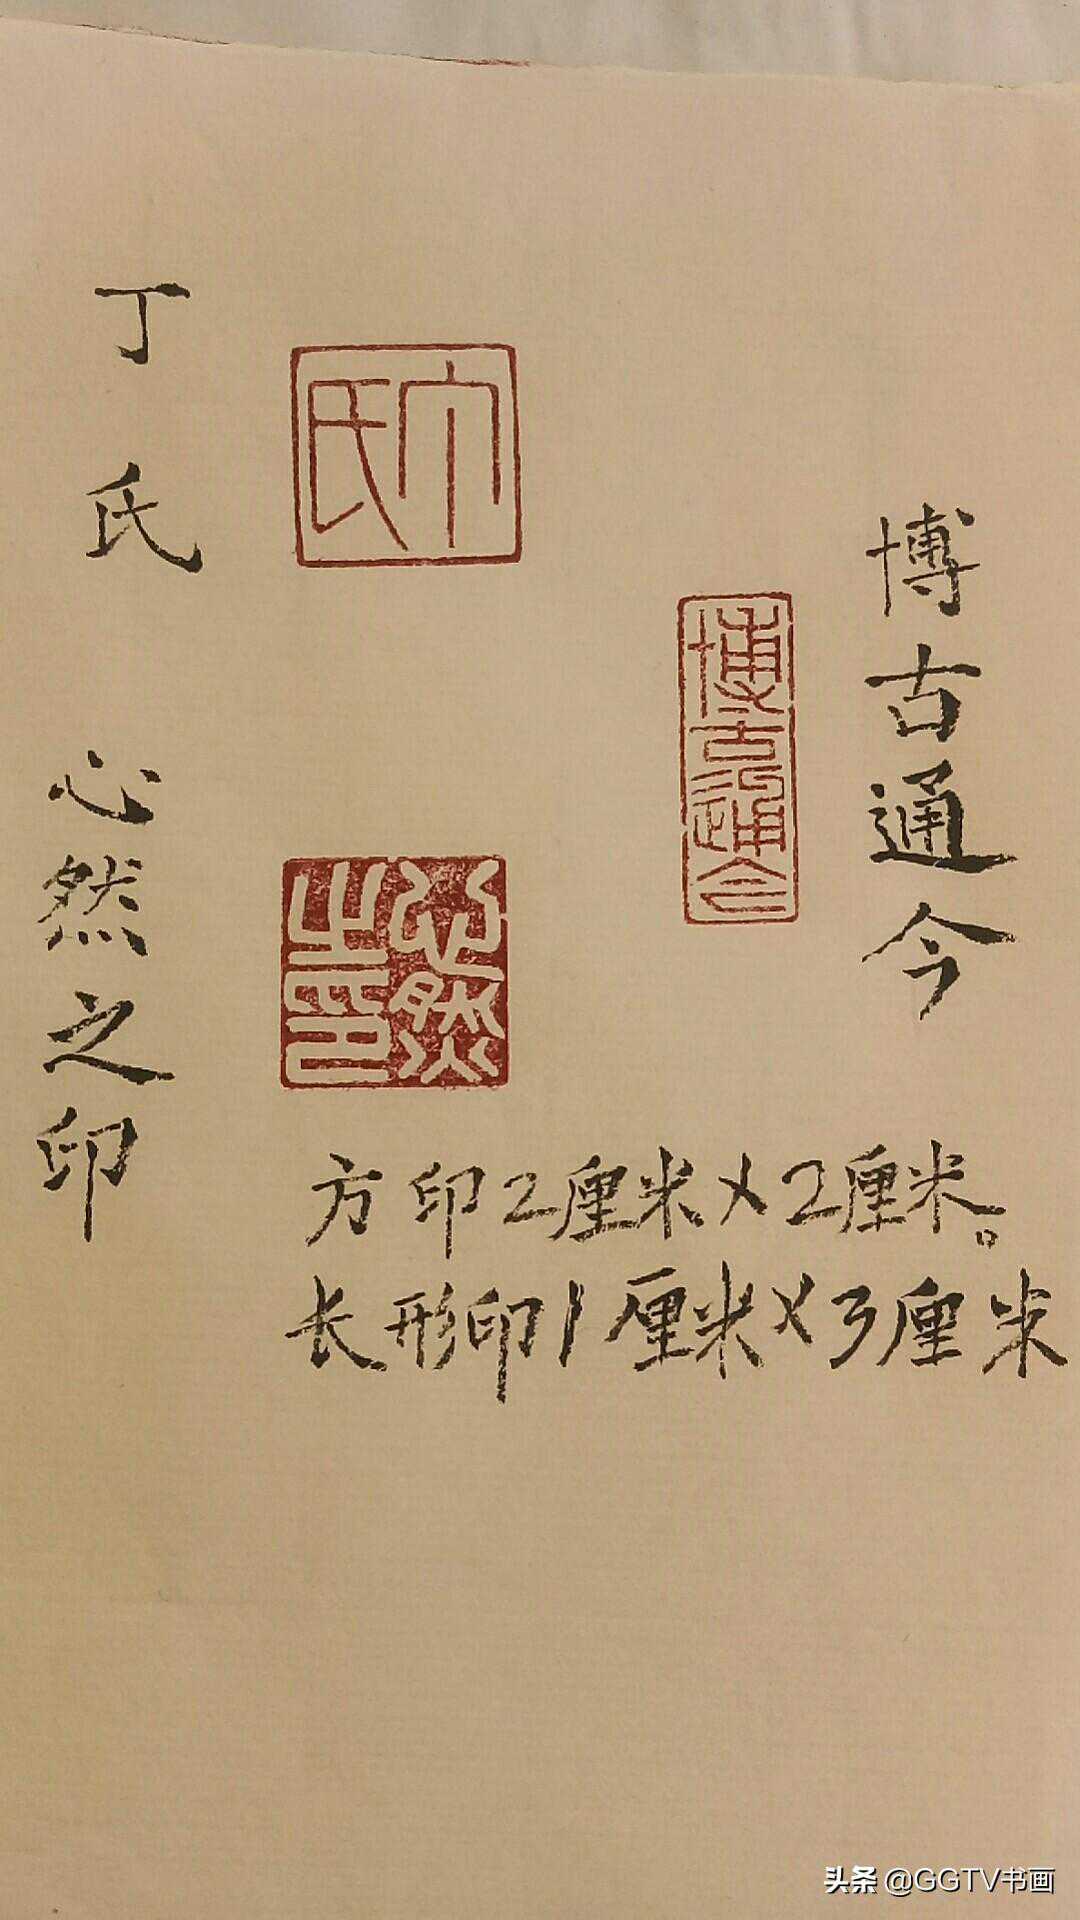 丁氏
丁氏
博古通今
博古通今
心然之印
心然之印
方印2厘米×2厘米。
长形印1厘米×3厘米
头条 @GGTV书画